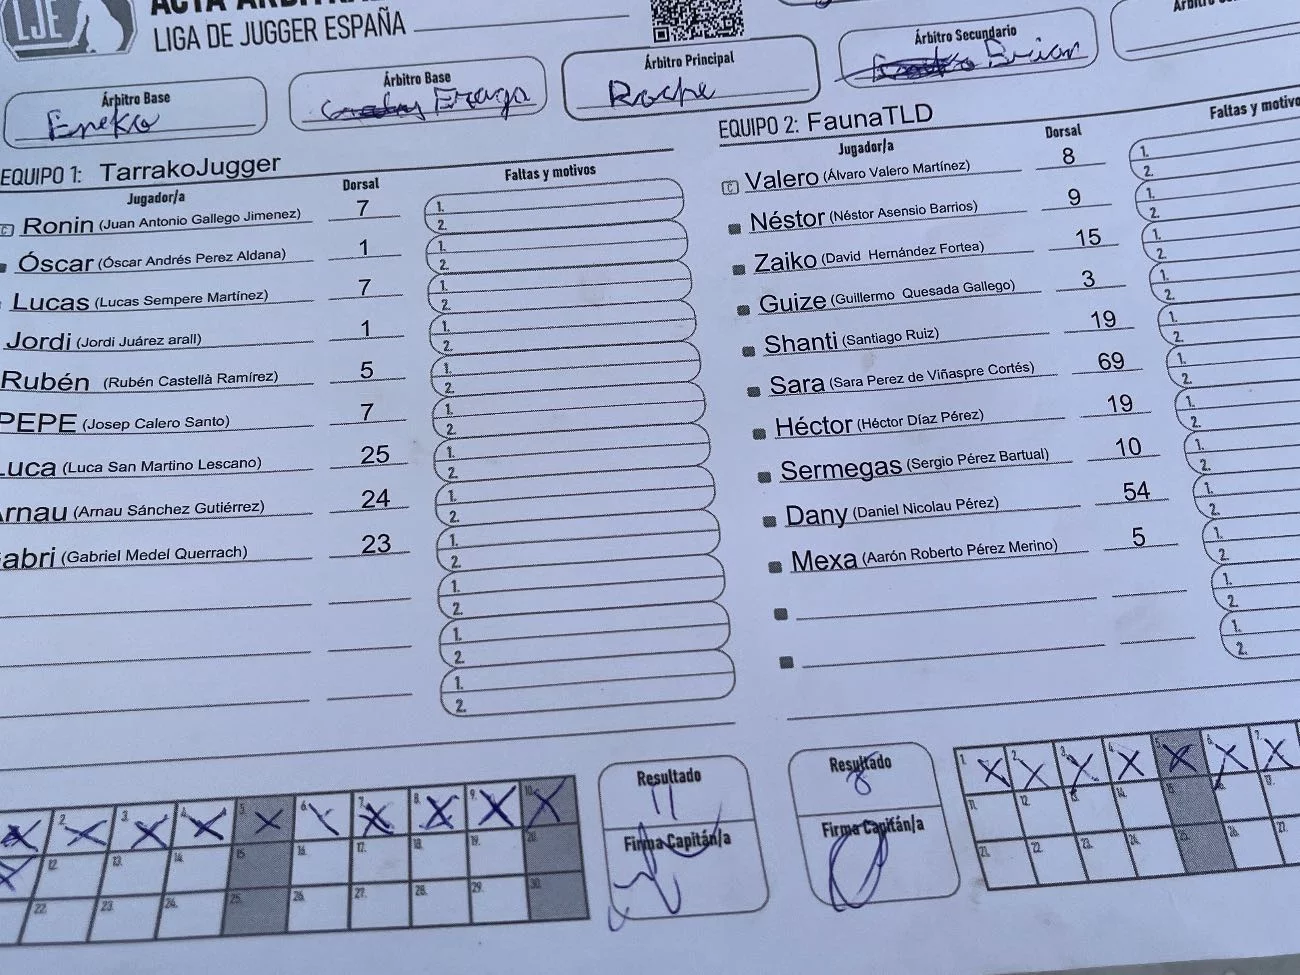 LJE
LIGA DE JUGGER ESPAÑA
Árbitro Base
Eneko
Árbitro Base
Árbitro Principal
Roche
Árbitro Secundario
Brian
EQUIPO 1: TarrakoJugger
Jugador/a Dorsal Faltas y motivos
C Ronin (Juan Antonio Gallego Jimenez) 7 1. 2.
Óscar (Óscar Andrés Perez Aldana) 1 1. 2.
Lucas (Lucas Sempere Martínez) 7 1. 2.
Jordi (Jordi Juárez arall) 1 1. 2.
Rubén (Rubén Castellà Ramírez) 5 1. 2.
PEPE (Josep Calero Santo) 7 1. 2.
Luca (Luca San Martino Lescano) 25 1. 2.
Arnau (Arnau Sánchez Gutiérrez) 24 1. 2.
abri (Gabriel Medel Querrach) 23 1. 2.
1. 2.
1. 2.
1. 2.
EQUIPO 2: FaunaTLD
Jugador/a Dorsal Faltas y motivo
C Valero (Álvaro Valero Martínez) 8 1. 2.
Néstor (Néstor Asensio Barrios) 9 1. 2.
Zaiko (David Hernández Fortea) 15 1. 2.
Guize (Guillermo Quesada Gallego) 3 1. 2.
Shanti (Santiago Ruiz) 19 1. 2.
Sara (Sara Perez de Viñaspre Cortés) 69 1. 2.
Héctor (Héctor Díaz Pérez) 19 1. 2.
Sermegas (Sergio Pérez Bartual) 10 1. 2.
Dany (Daniel Nicolau Pérez) 54 1. 2.
Mexa (Aarón Roberto Pérez Merino) 5 1. 2.
1. 2.
1. 2.
2. 3. 4. 5. 6. 7. 8. 9. 10.
12. 13. 14. 15. 16. 17. 18. 19. 20.
22. 23. 24. 25. 26. 27. 28. 29. 30.
Resultado
11
Firma Capitán/a
Resultado
8
Firma Capitán/a
1. 2. 3. 4. 5. 6. 7.
11. 12. 13. 14. 15. 16. 17.
21. 22. 23. 24. 25. 26. 27.